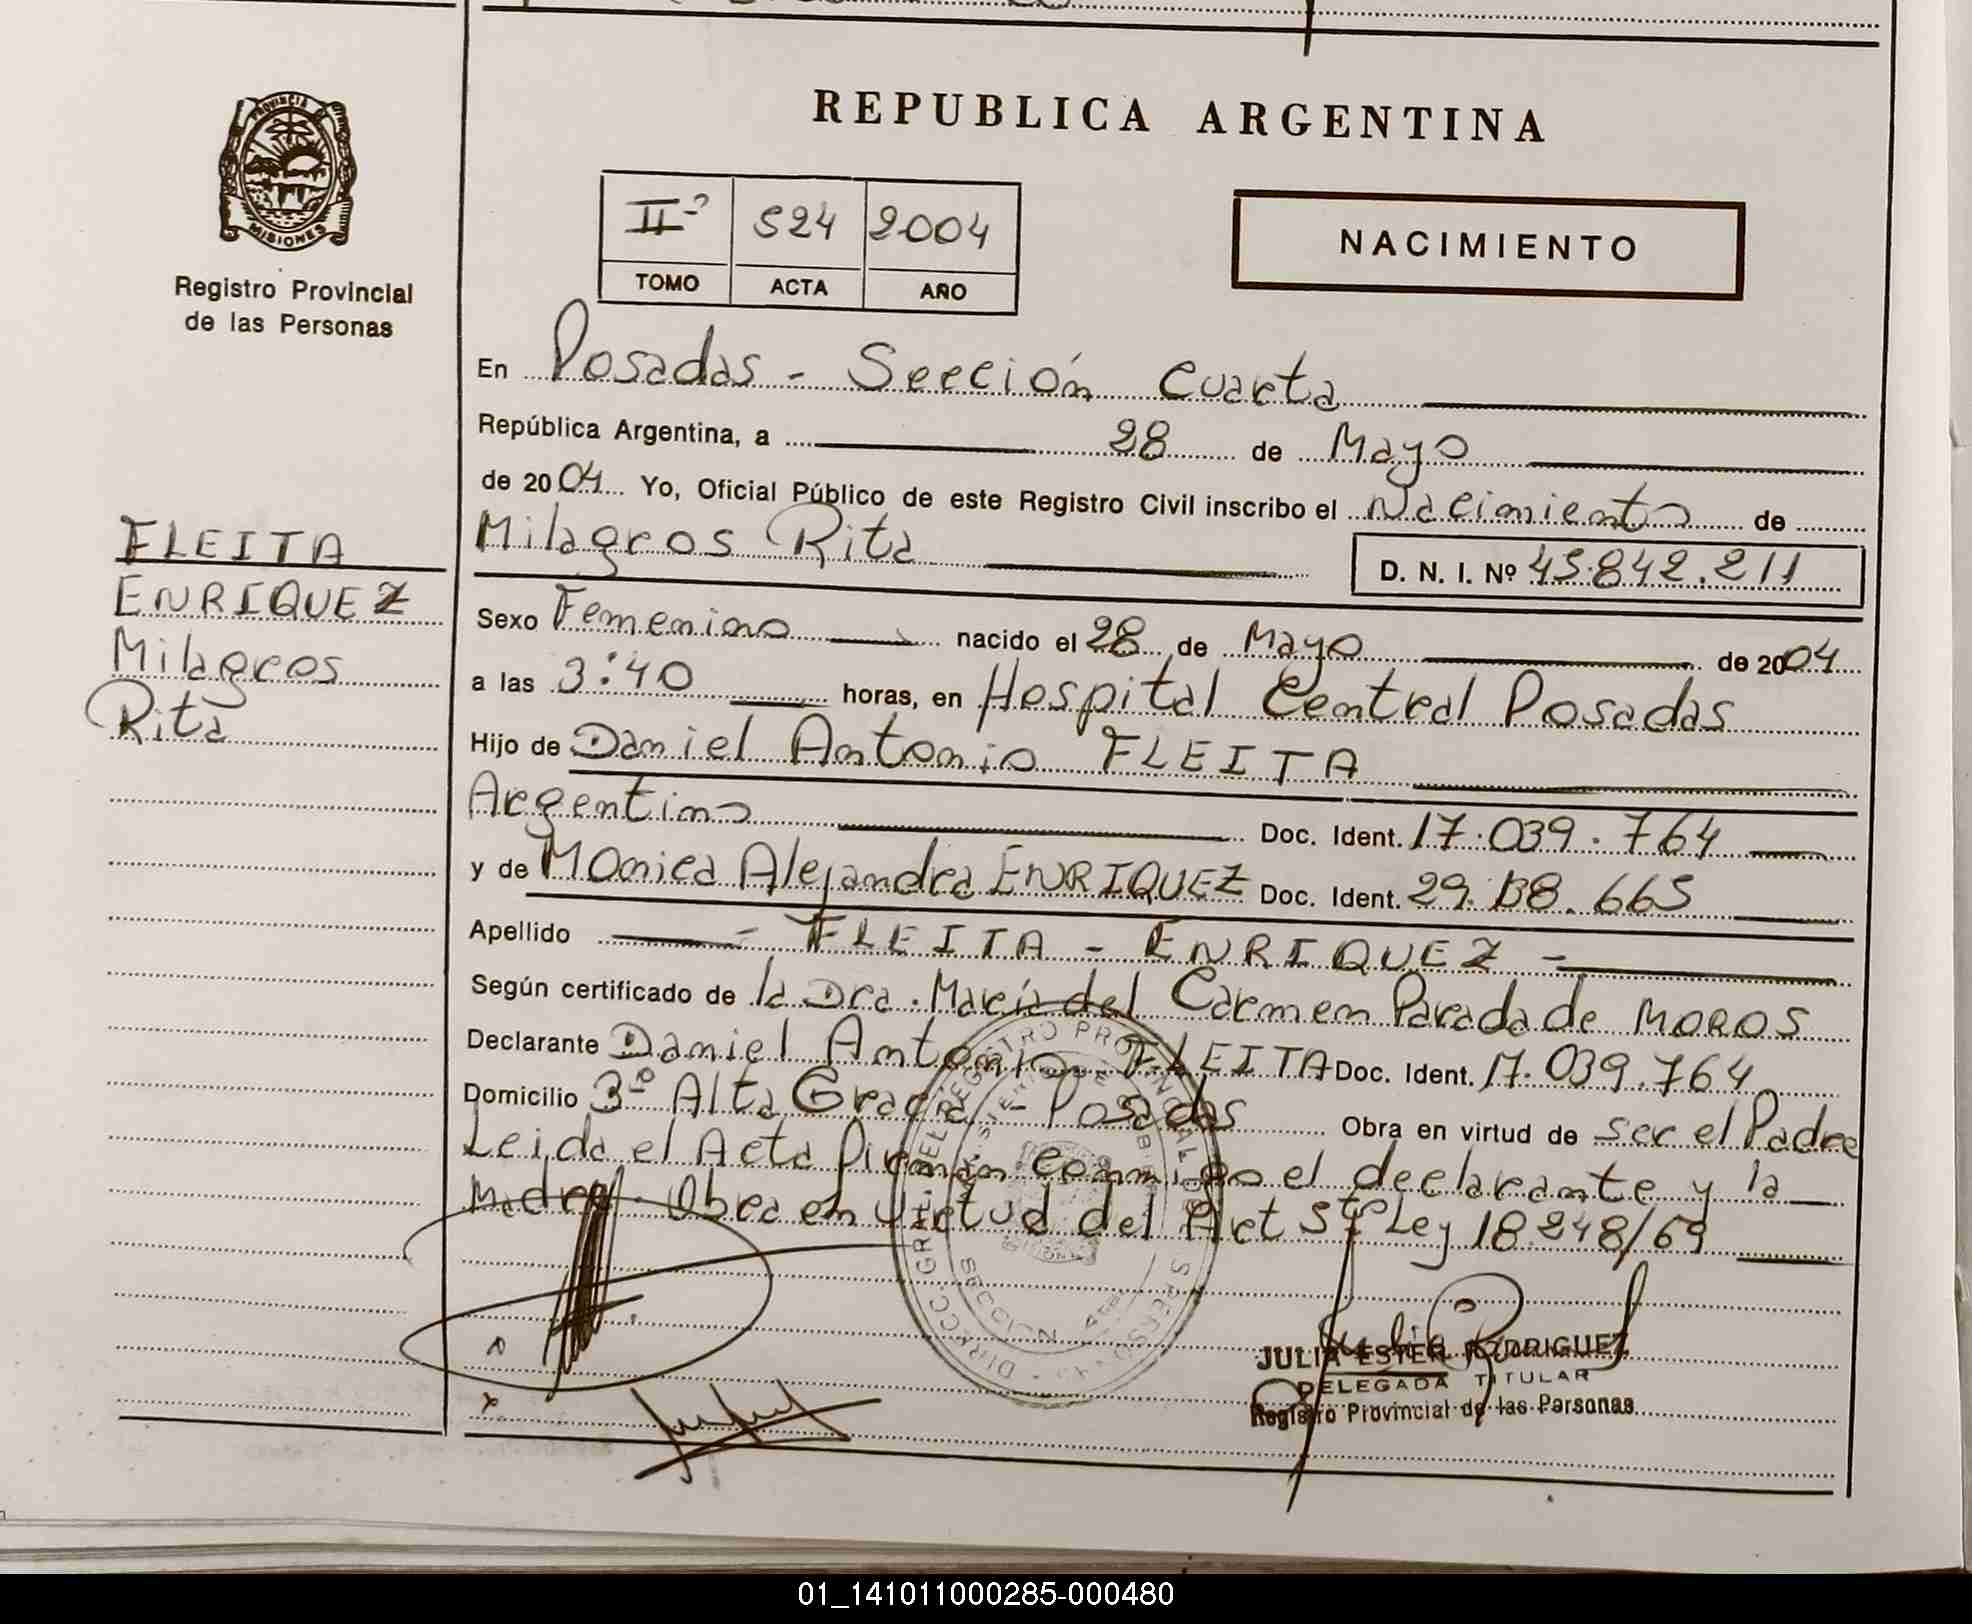 REPUBLICA ARGENTINA
PROVINCIA
MISIONES
Registro Provincial
de las Personas
IIº 524 2004
TOMO ACTA AÑO
NACIMIENTO
En Posadas - Sección Cuarta
República Argentina, a 28 de Mayo
de 2004 Yo, Oficial Público de este Registro Civil inscribo el Nacimiento de
Milagros Rita D. N. I. Nº 45.842.211
FLEITA
ENRIQUEZ
Milagros
Rita
Sexo Femenino nacido el 28 de Mayo de 2004
a las 3:40 horas, en Hospital Central Posadas
Hijo de Daniel Antonio FLEITA
Argentino Doc. Ident. 17.039.764
y de Monica Alejandra ENRIQUEZ Doc. Ident. 29. .665
Apellido - FLEITA - ENRIQUEZ -
Según certificado de la Dra. María del Carmen Parada de MOROS
Declarante Daniel Antonio FLEITA Doc. Ident. 17.039.764
Domicilio 3º Alta Gracia - Posadas Obra en virtud de ser el Padre
Leida el Acta Firman conmigo el declarante y la
Madre. Obra en virtud del Art 5to Ley 18.248/69
JULIA ESTER RODRIGUEZ
DELEGADA TITULAR
Registro Provincial de las Personas
01_141011000285-000480